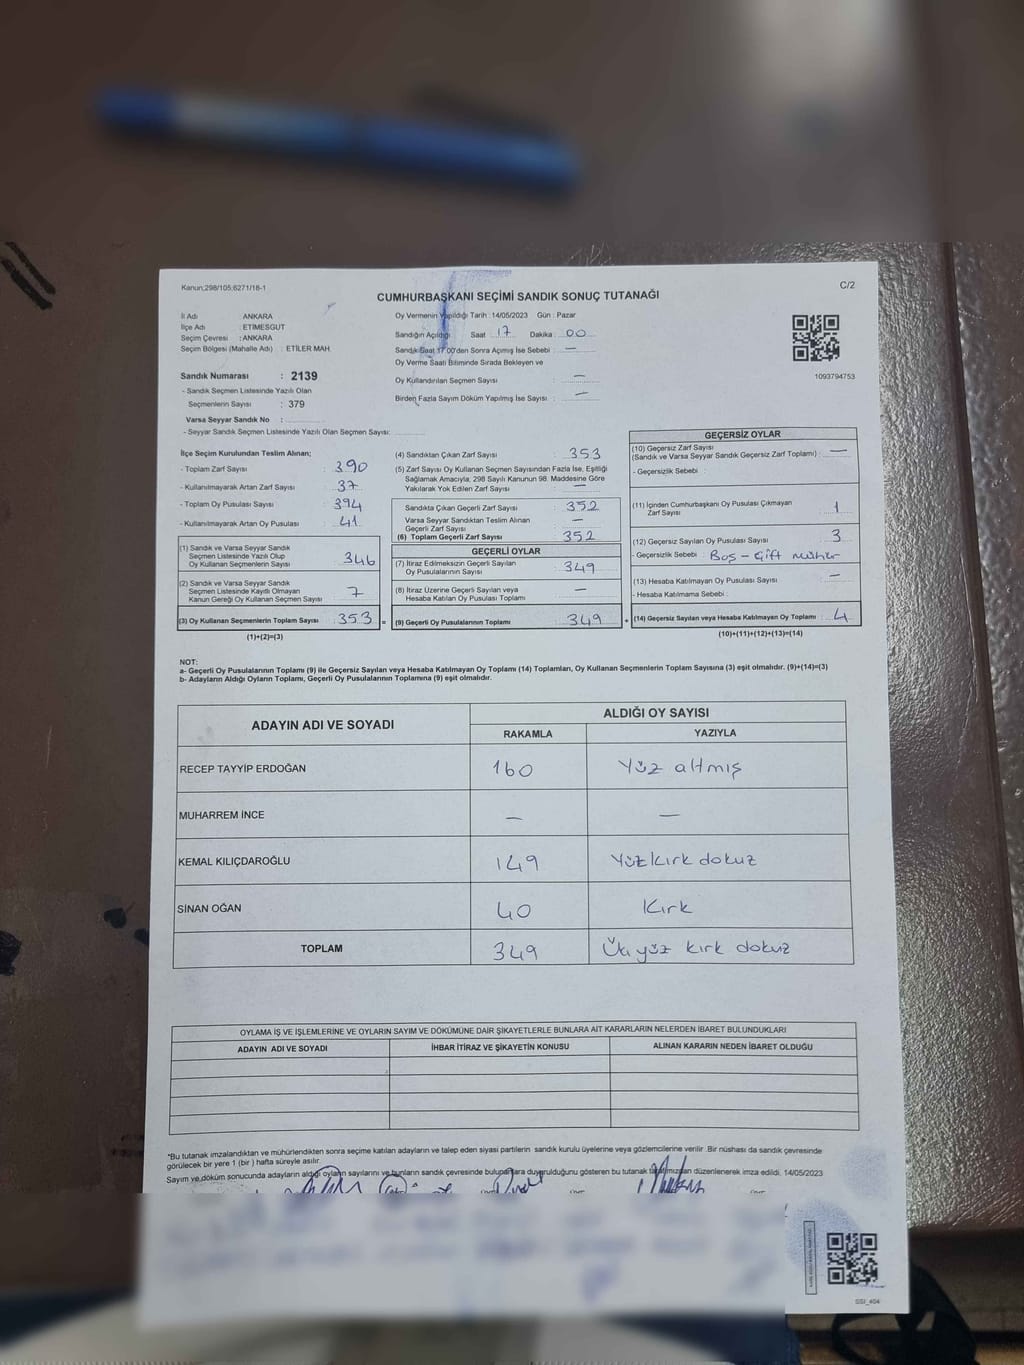 Kanun;298/105;6271/18-1
C/2
CUMHURBAŞKANI SEÇİMİ SANDIK SONUÇ TUTANAĞI
İl Adı : ANKARA
İlçe Adı : ETİMESGUT
Seçim Çevresi : ANKARA
Seçim Bölgesi (Mahalle Adı) : ETİLER MAH.
Oy Vermenin Yapıldığı Tarih : 14/05/2023 Gün : Pazar
Sandığın Açıldığı Saat : 17 Dakika : 00
Sandık Saat 17:00'den Sonra Açımış İse Sebebi : —
Oy Verme Saati Bitiminde Sırada Bekleyen ve
Oy Kullandırılan Seçmen Sayısı : —
Birden Fazla Sayım Döküm Yapılmış İse Sayısı : —
1093794753
Sandık Numarası : 2139
- Sandık Seçmen Listesinde Yazılı Olan
Seçmenlerin Sayısı : 379
Varsa Seyyar Sandık No :
- Seyyar Sandık Seçmen Listesinde Yazılı Olan Seçmen Sayısı:
İlçe Seçim Kurulundan Teslim Alınan;
- Toplam Zarf Sayısı : 390
- Kullanılmayarak Artan Zarf Sayısı : 37
- Toplam Oy Pusulası Sayısı : 394
- Kullanılmayarak Artan Oy Pusulası : 41
(1) Sandık ve Varsa Seyyar Sandık
Seçmen Listesinde Yazılı Olup
Oy Kullanan Seçmenlerin Sayısı : 346
(2) Sandık ve Varsa Seyyar Sandık
Seçmen Listesinde Kayıtlı Olmayan
Kanun Gereği Oy Kullanan Seçmen Sayısı : 7
(3) Oy Kullanan Seçmenlerin Toplam Sayısı : 353 =
(1)+(2)=(3)
(4) Sandıktan Çıkan Zarf Sayısı : 353
(5) Zarf Sayısı Oy Kullanan Seçmen Sayısından Fazla İse, Eşitliği
Sağlamak Amacıyla; 298 Sayılı Kanunun 98. Maddesine Göre
Yakılarak Yok Edilen Zarf Sayısı : —
Sandıkta Çıkan Geçerli Zarf Sayısı : 352
Varsa Seyyar Sandıktan Teslim Alınan
Geçerli Zarf Sayısı : —
(6) Toplam Geçerli Zarf Sayısı : 352
GEÇERLİ OYLAR
(7) İtiraz Edilmeksizin Geçerli Sayılan
Oy Pusulalarının Sayısı : 349
(8) İtiraz Üzerine Geçerli Sayılan veya
Hesaba Katılan Oy Pusulası Toplamı : —
(9) Geçerli Oy Pusulalarının Toplamı : 349 +
GEÇERSİZ OYLAR
(10) Geçersiz Zarf Sayısı
(Sandık ve Varsa Seyyar Sandık Geçersiz Zarf Toplamı) : —
- Geçersizlik Sebebi :
(11) İçinden Cumhurbaşkanı Oy Pusulası Çıkmayan
Zarf Sayısı : 1
(12) Geçersiz Sayılan Oy Pusulası Sayısı : 3
- Geçersizlik Sebebi : Boş - Çift mühür
(13) Hesaba Katılmayan Oy Pusulası Sayısı : —
- Hesaba Katılmama Sebebi :
(14) Geçersiz Sayılan veya Hesaba Katılmayan Oy Toplamı : 4
(10)+(11)+(12)+(13)=(14)
NOT:
a- Geçerli Oy Pusulalarının Toplamı (9) ile Geçersiz Sayılan veya Hesaba Katılmayan Oy Toplamı (14) Toplamları, Oy Kullanan Seçmenlerin Toplam Sayısına (3) eşit olmalıdır. (9)+(14)=(3)
b- Adayların Aldığı Oyların Toplamı, Geçerli Oy Pusulalarının Toplamına (9) eşit olmalıdır.
ADAYIN ADI VE SOYADI
ALDIĞI OY SAYISI
RAKAMLA YAZIYLA
RECEP TAYYİP ERDOĞAN 160 Yüz altmış
MUHARREM İNCE — —
KEMAL KILIÇDAROĞLU 149 Yüz kırk dokuz
SİNAN OĞAN 40 Kırk
TOPLAM 349 Üç yüz kırk dokuz
OYLAMA İŞ VE İŞLEMLERİNE VE OYLARIN SAYIM VE DÖKÜMÜNE DAİR ŞİKAYETLERLE BUNLARA AİT KARARLARIN NELERDEN İBARET BULUNDUKLARI
ADAYIN ADI VE SOYADI İHBAR İTİRAZ VE ŞİKAYETİN KONUSU ALINAN KARARIN NEDEN İBARET OLDUĞU
*Bu tutanak imzalandıktan ve mühürlendikten sonra seçime katılan adayların ve talep eden siyasi partilerin sandık kurulu üyelerine veya gözlemcilerine verilir. Bir nüshası da sandık çevresinde
görülecek bir yere 1 (bir ) hafta süreyle asılır.
Sayım ve döküm sonucunda adayların aldığı oyların sayılarını ve bunların sandık çevresinde bulunanlara duyurulduğunu gösteren bu tutanak tarafımızdan düzenlenerek imza edildi. 14/05/2023
SSI_404